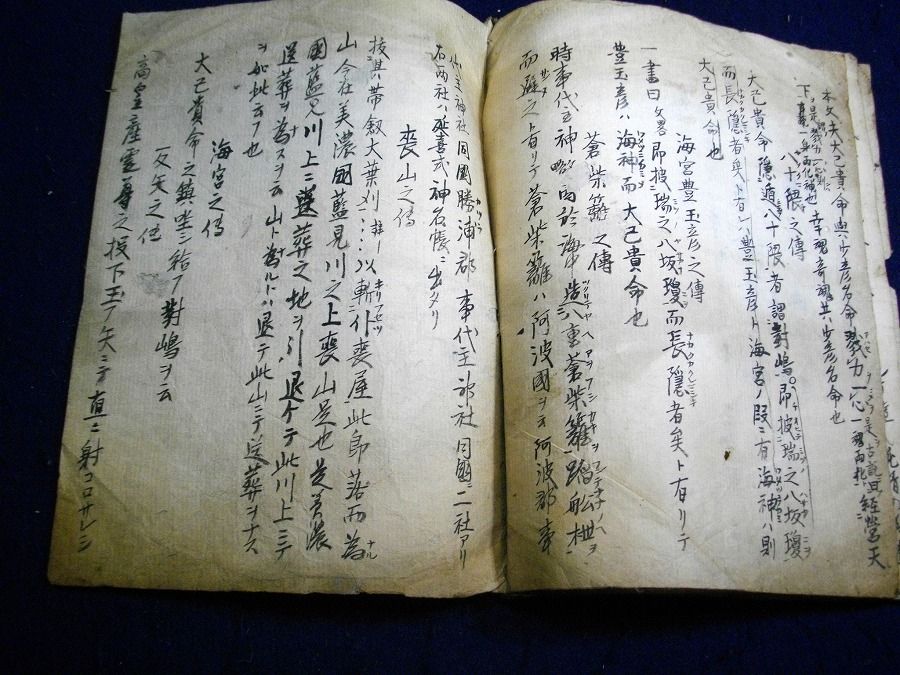 本文夫大己貴命與少彦名命戮力一心經營天
下
八十隈之傳
大己貴命隠遁八十隈者謂對嶋即披瑞之八坂瓊
而長隠者矣ト有レハ豊玉彦ト海宮ノ段ニ有海神ハ則
大己貴命也
海宮豊玉彦之傳
一書曰畧即披瑞之八坂瓊而長隠者矣ト有リテ
豊玉彦ハ海神而大己貴命也
蒼柴籬之傳
時事代主神畧而於海中造八重蒼柴籬蹈船枻
而避之ト有リテ蒼柴籬ハ阿波國ヲ云阿波郡事
代主神社同國勝浦郡事代主神社同國ニ二社アリ
右両社ハ延喜式神名帳ニ出タリ
喪山之傳
拔其帯劔大葉刈以斬仆喪屋此即落而為
山今在美濃國藍見川之上喪山是也是美濃
國藍見川上ニ送葬之地ヲ引退ケテ此川上ニテ
送葬ヲ為スヲ云山ト為ルトハ退テ此山ニテ送葬ヲナス
ヲ如此云フ也
海宮之傳
大己貴命之鎮坐シ給フ對嶋ヲ云
反矢之傳
高皇産霊尊之投下玉フ矢ニテ直ニ射コロサレシ